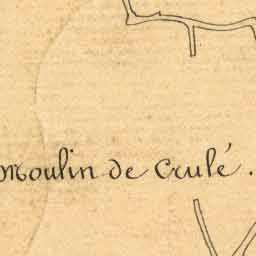 Moulin de Crulé.